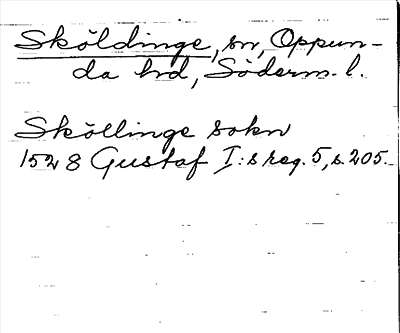 Sköldinge, sn, Oppun-
da hd, Söderm. l.
Sköllinge sokn
1528 Gustaf I:s reg. 5, s. 205.